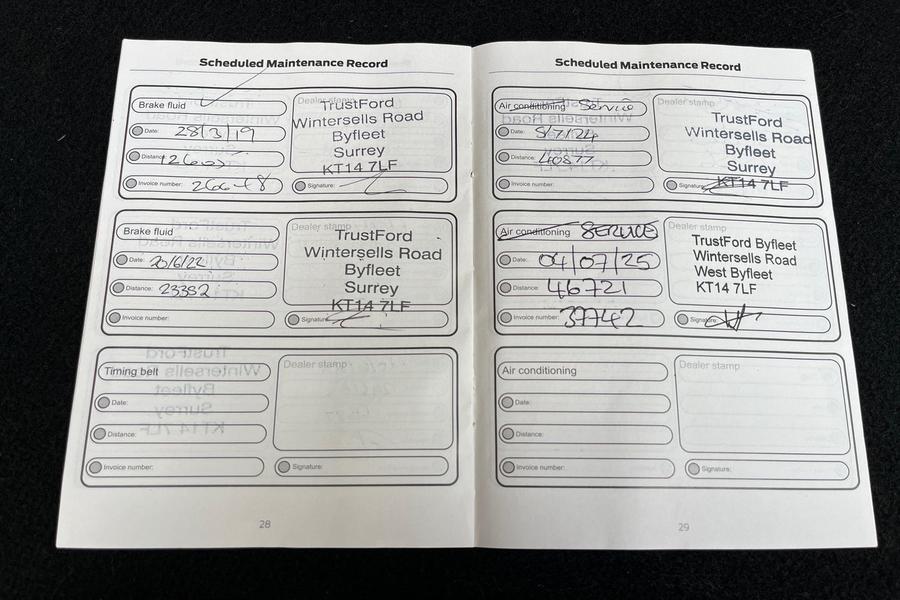 Scheduled Maintenance Record
Brake fluid
Date: 28/3/19
Distance:
Invoice number:
Dealer stamp
TrustFord
Wintersells Road
Byfleet
Surrey
KT14 7LF
Signature:
Brake fluid
Date: 20/6/22
Distance: 23352
Invoice number:
Dealer stamp
TrustFord
Wintersells Road
Byfleet
Surrey
KT14 7LF
Signature:
Timing belt
Date:
Distance:
Invoice number:
Dealer stamp
Signature:
28
Scheduled Maintenance Record
Air conditioning Service
Date: 5/7/24
Distance: 40877
Invoice number:
Dealer stamp
TrustFord
Wintersells Road
Byfleet
Surrey
KT14 7LF
Signature:
Air conditioning SERVICE
Date: 04/07/25
Distance: 46721
Invoice number: 39742
Dealer stamp
TrustFord Byfleet
Wintersells Road
West Byfleet
KT14 7LF
Signature:
Air conditioning
Date:
Distance:
Invoice number:
Dealer stamp
Signature:
29